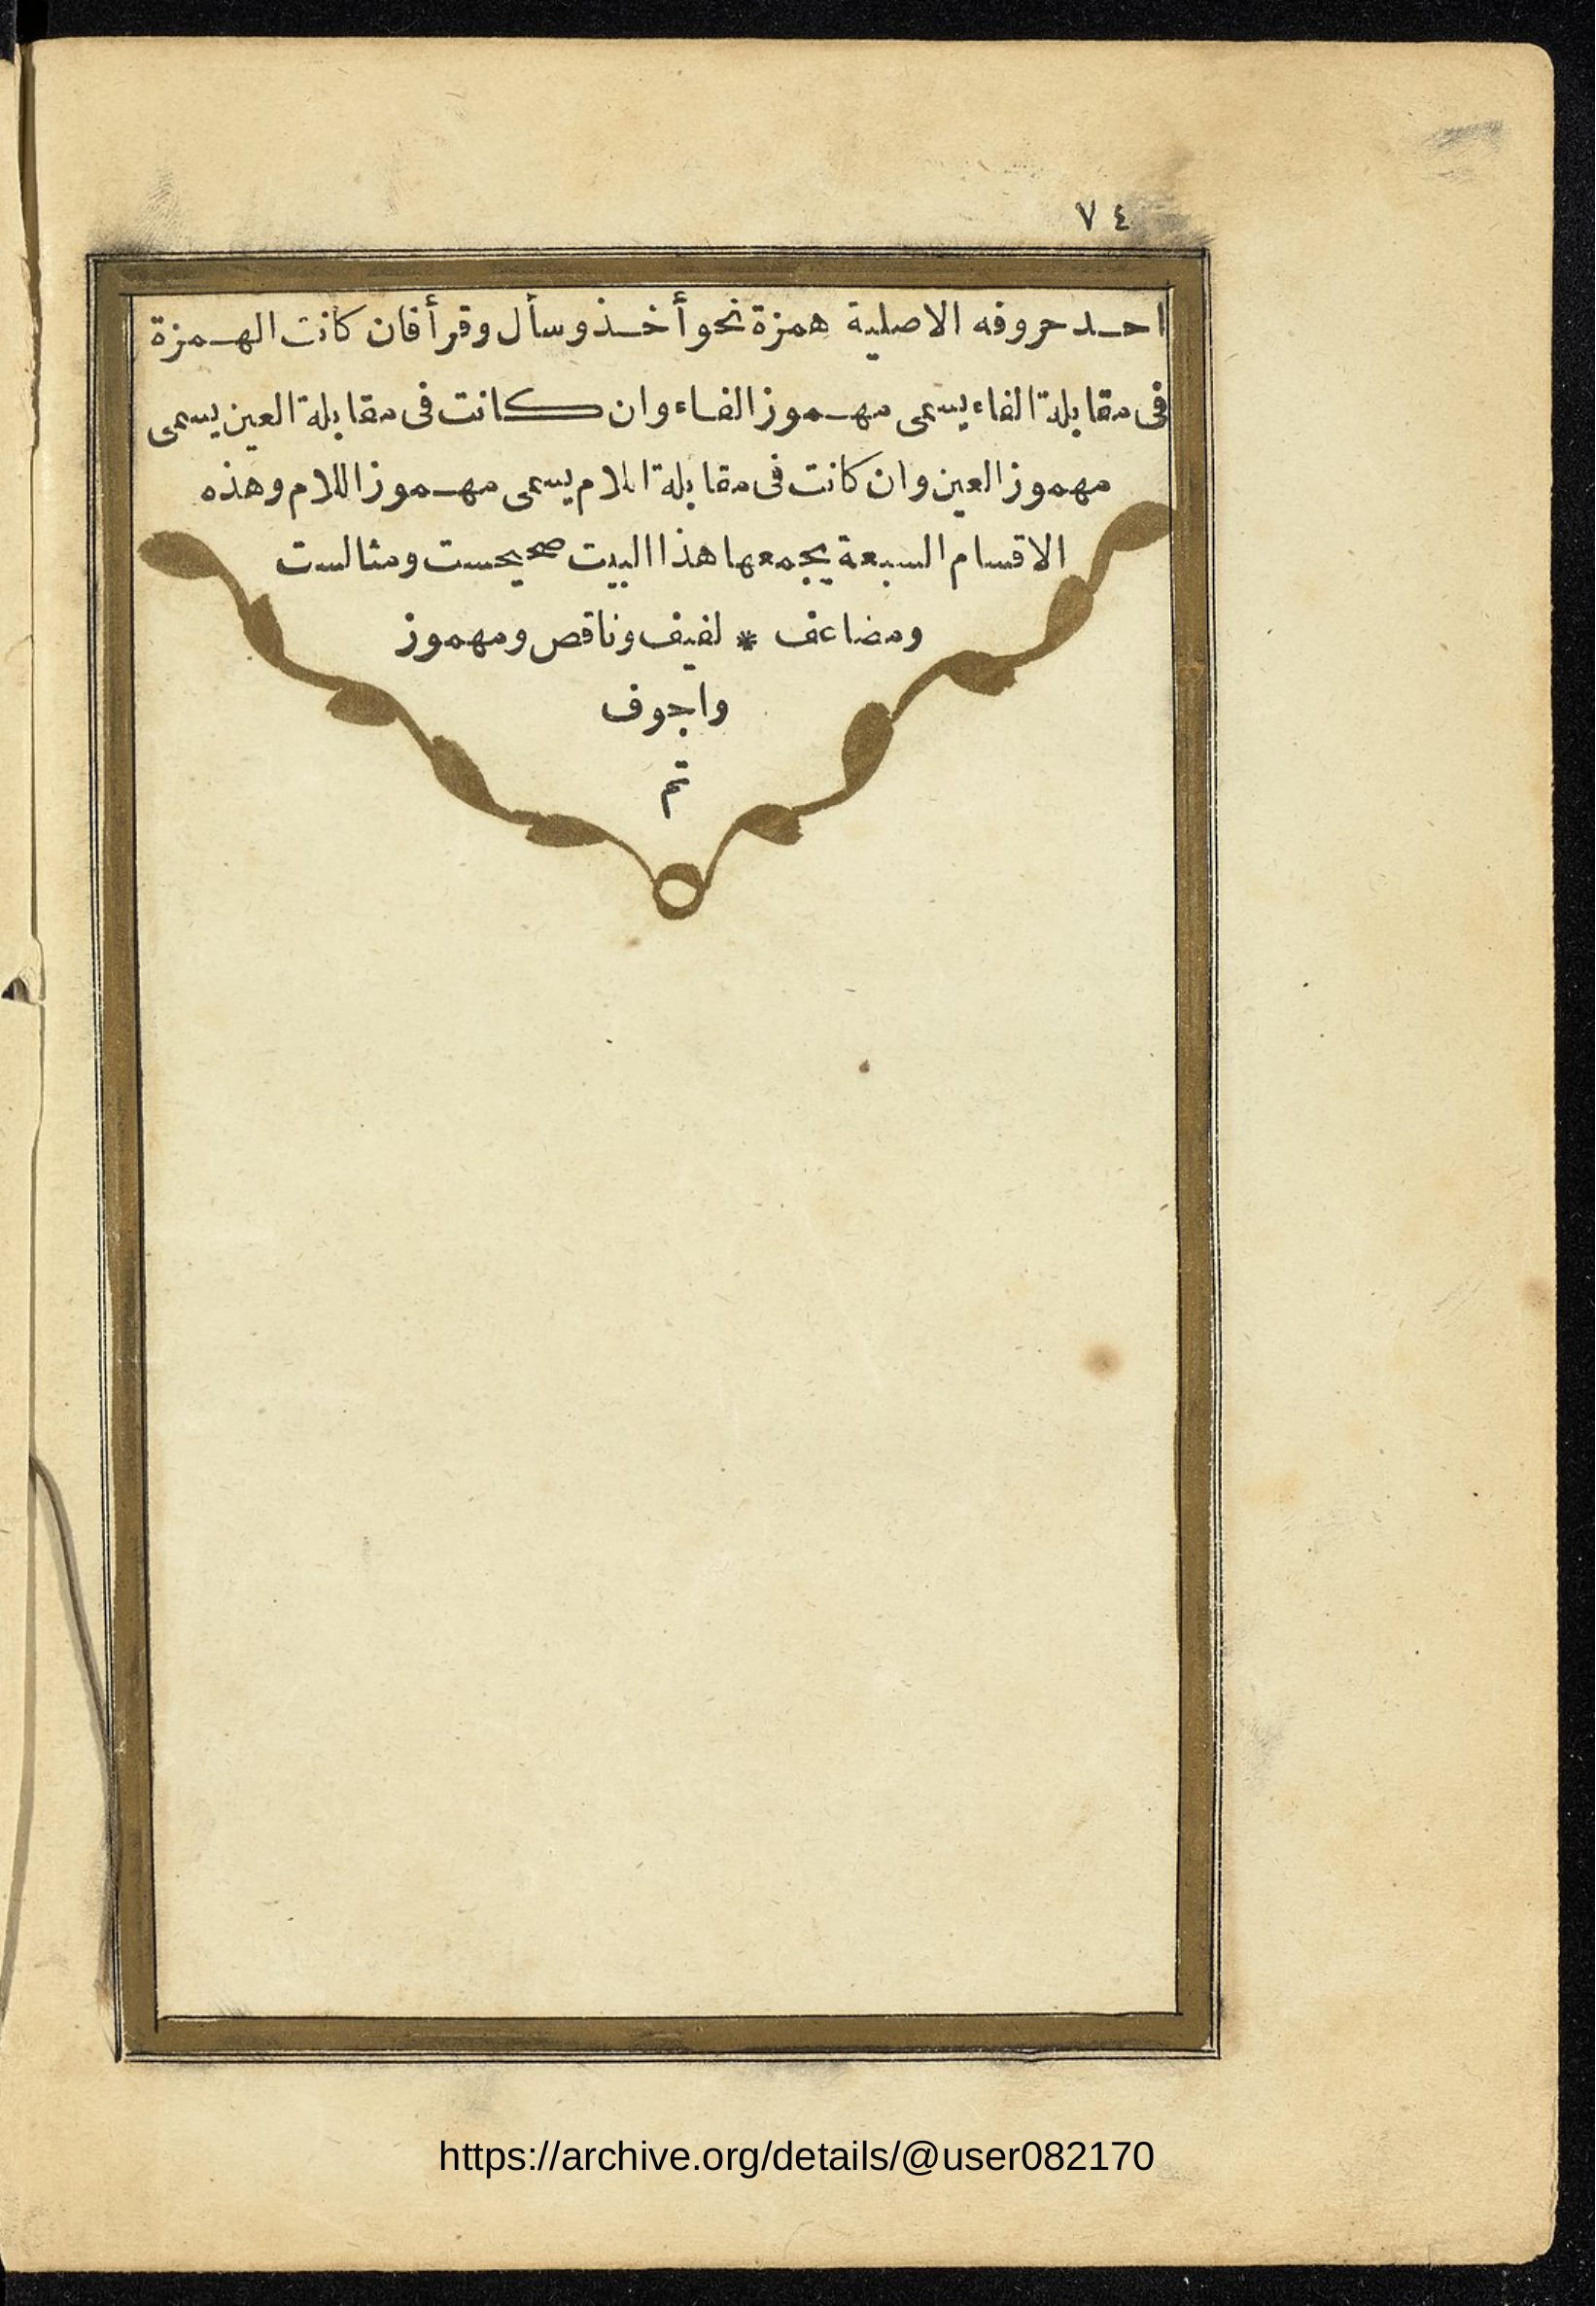 ٧٤
احد حروفه الاصلية همزة نحو أخذ وسأل وقرأ فان كانت الهمزة
فى مقابلة الفاء يسمى مهموز الفاء وان كانت فى مقابلة العين يسمى
مهموز العين وان كانت فى مقابلة اللام يسمى مهموز اللام وهذه
الاقسام السبعة يجمعها هذا البيت صحيحست ومثالست
ومضاعف * لفيف وناقص ومهموز
واجوف
تم
https://archive.org/details/@user082170